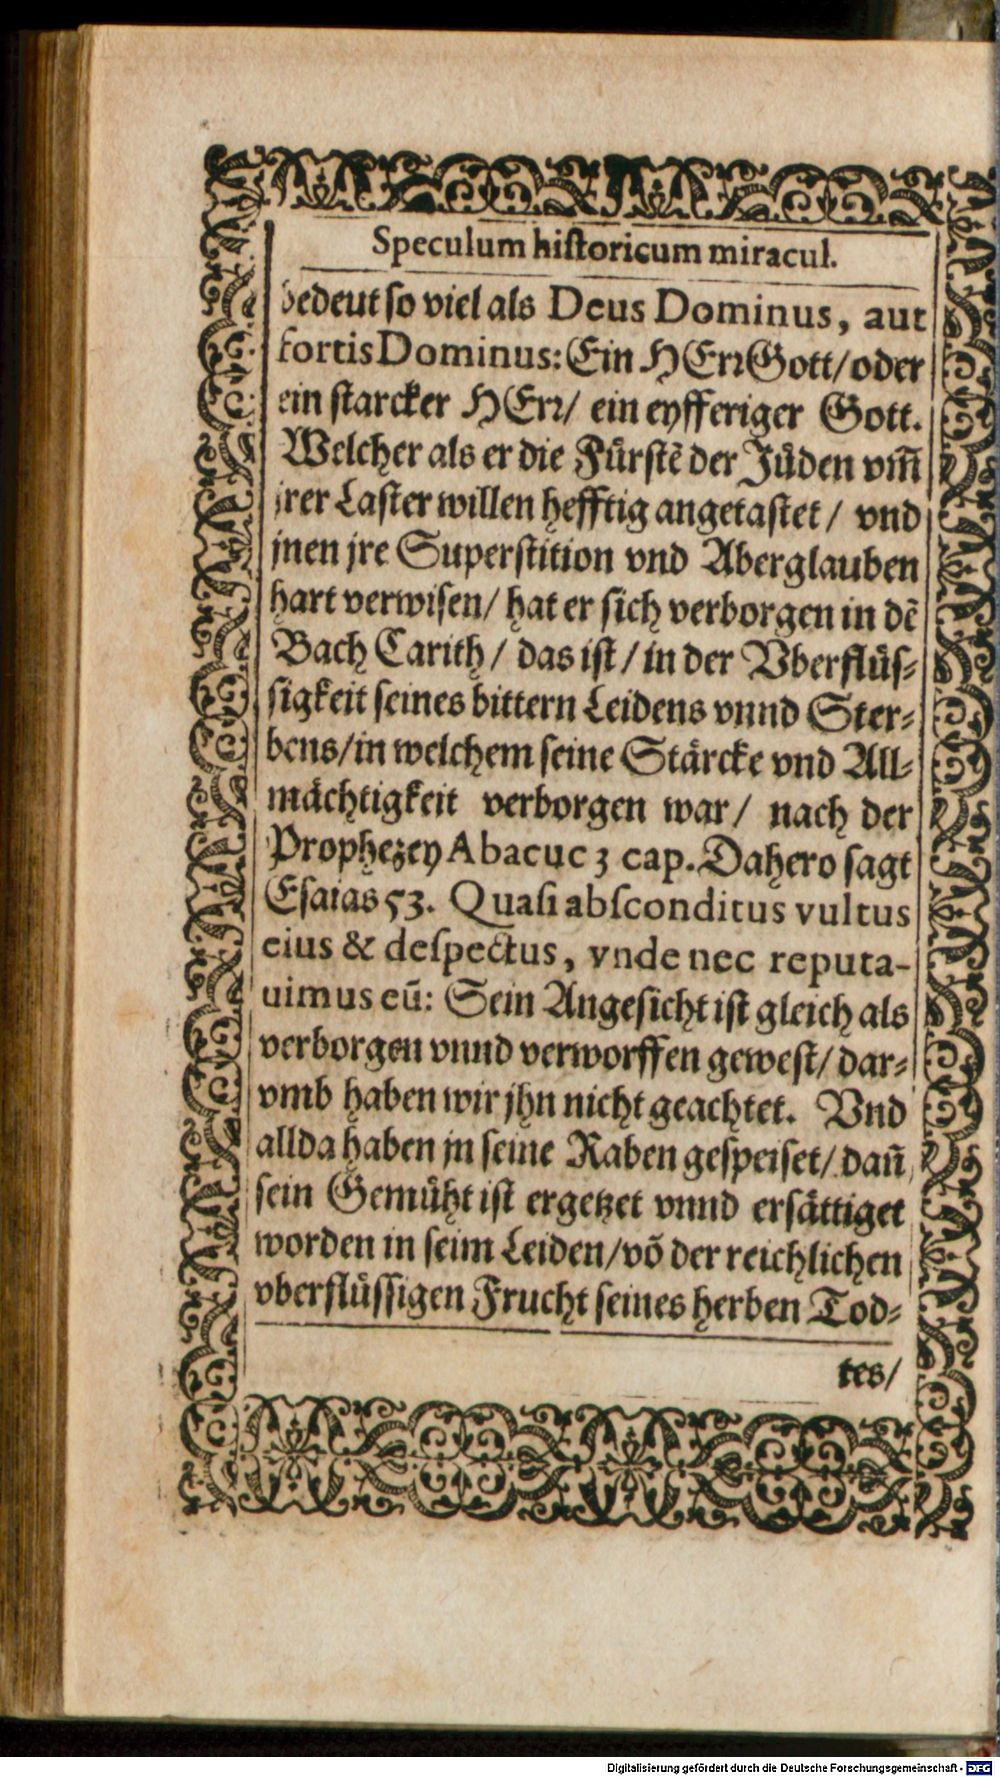 Speculum historicum miracul.
bedeut so viel als Deus Dominus, aut
fortis Dominus: Ein HErr Gott/ oder
ein starcker HErr/ ein eyfferiger Gott.
Welcher als er die Fürstē der Jüden vm̄
jrer Laster willen hefftig angetastet/ vnd
jnen jre Superstition vnd Aberglauben
hart verwisen/ hat er sich verborgen in dē
Bach Carith/ das ist/ in der Vberflüs-
sigkeit seines bittern Leidens vnnd Ster-
bens/ in welchem seine Stärcke vnd All-
mächtigkeit verborgen war/ nach der
Prophezey Abacuc 3 cap. Dahero sagt
Esaias 53. Quasi absconditus vultus
eius & despectus, vnde nec reputa-
uimus eū: Sein Angesicht ist gleich als
verborgen vnnd verworffen gewest/ dar-
vmb haben wir jhn nicht geachtet. Vnd
allda haben jn seine Raben gespeiset/ dan̄
sein Gemüht ist ergetzet vnnd ersättiget
worden in seim Leiden/ võ der reichlichen
vberflüssigen Frucht seines herben Tod-
tes/
Digitalisierung gefördert durch die Deutsche Forschungsgemeinschaft - DFG